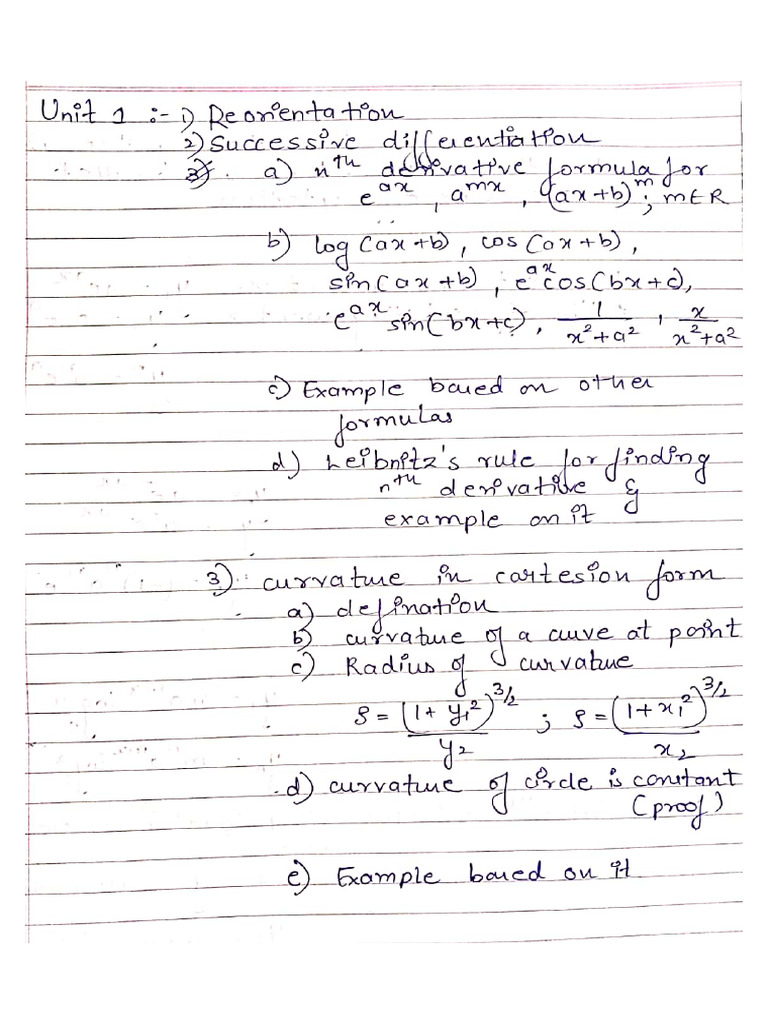 Unit 1 :- 1) Reorientation
2) Successive differentiation
a) nth derivative formula for
e^ax , a^mx , (ax+b)^m ; m∈R
b) log(ax+b), cos(ax+b),
sin(ax+b), e^ax cos(bx+c),
e^ax sin(bx+c), 1/(x²+a²) , x/(x²+a²)
c) Example based on other
formulas
d) Leibnitz's rule for finding
nth derivative &
example on it
3) curvature in cartesion form
a) defination
b) curvature of a curve at point
c) Radius of curvature
ρ = (1+y₁²)^3/2 / y₂ ; ρ = (1+x₁²)^3/2 / x₂
d) curvature of circle is constant
(proof)
e) Example based on it